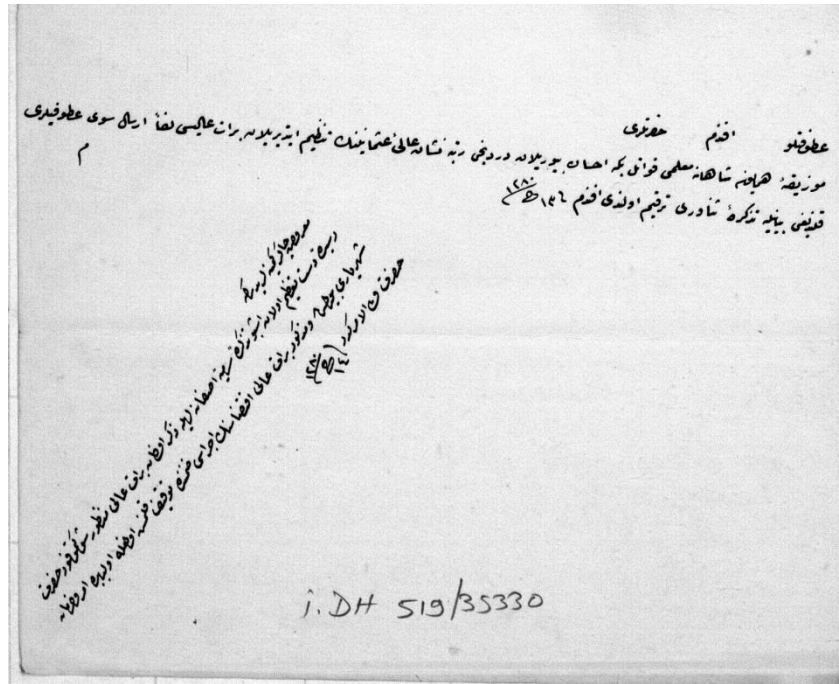 عطوفتلو افندم حضرتلری
موزیقهٔ همایون شاهانه معلمی قواتلی بكه احسان بیوریلان دردنجی رتبه نشان عالیٔ عثمانینك تنظیم ایتدیریلان برات عالیسی لفا ارسال سوی عطوفیلری
قلندیغی بیانیله تذكرهٔ ثناوری ترقیم اولندی افندم ١٢٨٠
م
معروض چاكر كمینه لریدر كه
رسیدهٔ دست تعظیم اولان اشبو تذكرهٔ سامیهٔ آصفانه لریله ذكر اولنان برات عالی منظور شوكتموفور حضرت
شهریاری بیورلمش و مذكور برات عالی اقتضاسنك اجراسی ضمننده اعاده قلنمش اولمغله اولبابده امر وفرمان
حضرت ولی الامركدر ١٤ ١٢٨٠
İ.DH 519/35330